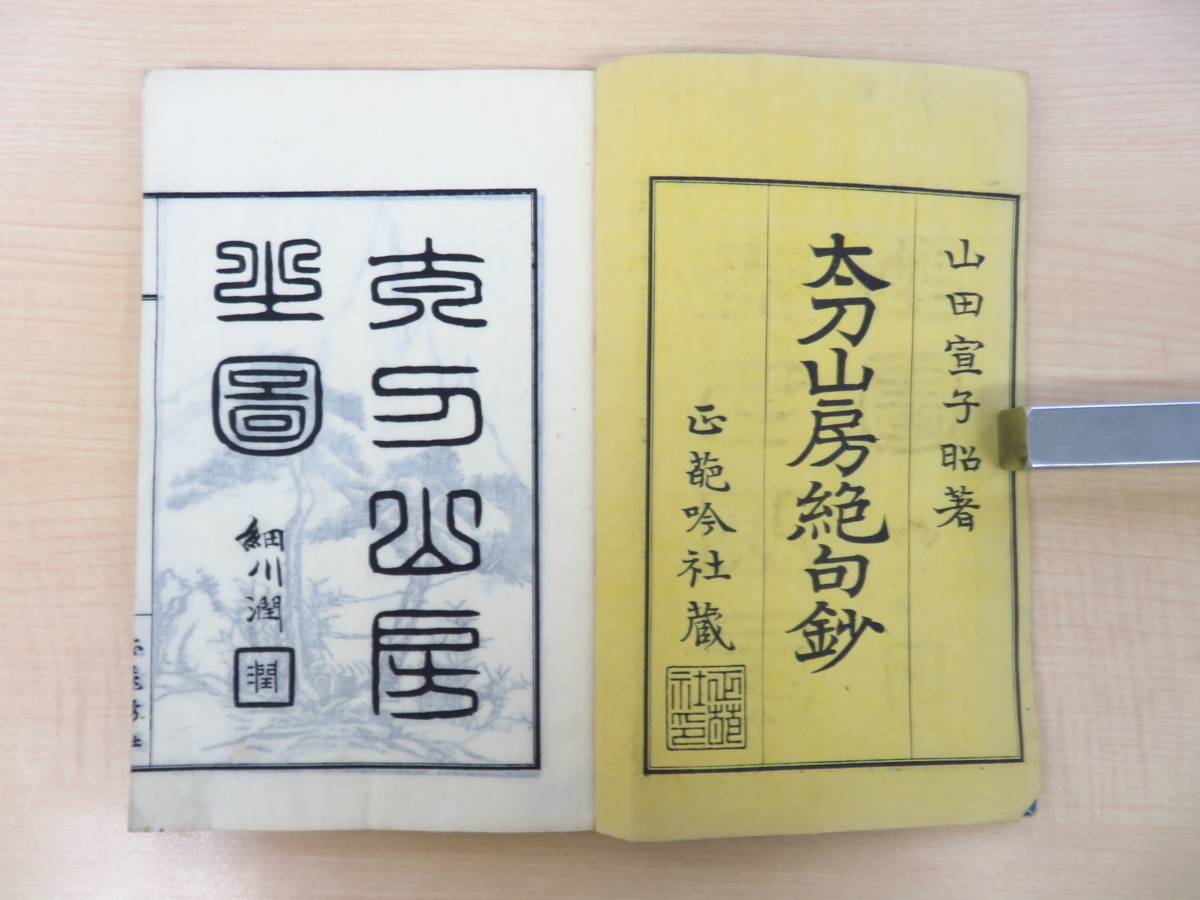 山田宣子昭著
太刀山房絶句鈔
正葩吟社蔵
正葩
社印
山房
圖
細川潤
潤